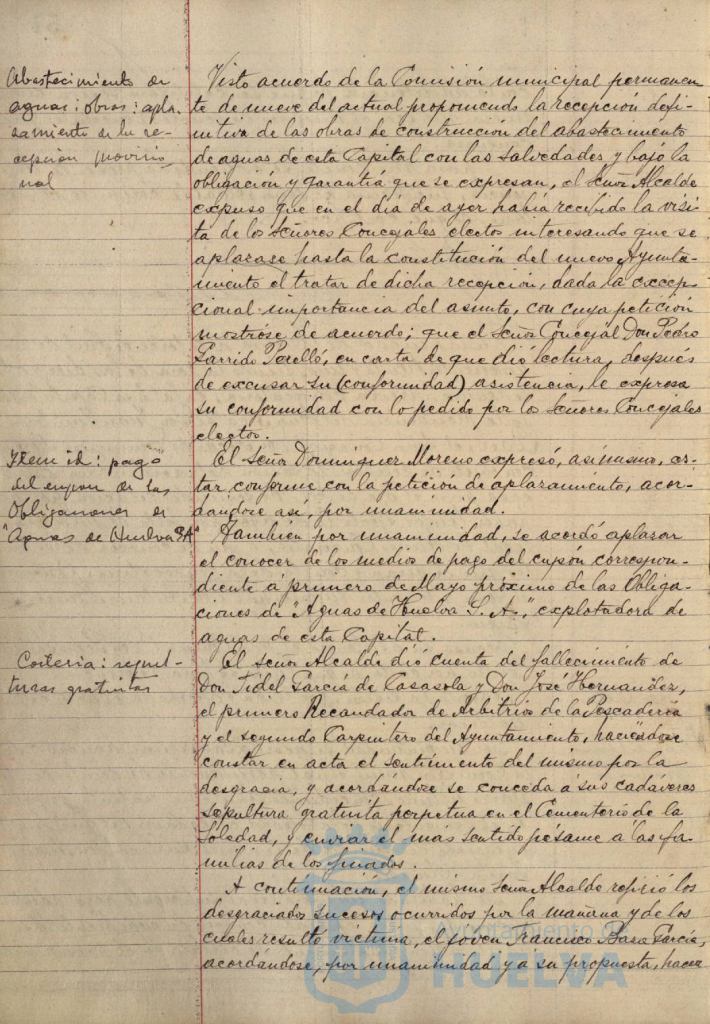 Abastecimiento de
aguas: obras: apla-
zamiento en la re-
cepción provisio-
nal
Visto acuerdo de la Comisión municipal permanen-
te de nueve del actual proponiendo la recepción defi-
nitiva de las obras de construcción del abastecimento
de aguas de esta Capital con las salvedades y bajo la
obligación y garantiá que se expresan, el Señor Alcalde
expuso que en el día de ayer había recibido la visi-
ta de los Señores Concejales electos interesando que se
aplazase hasta la constitución del nuevo Ayunta-
miento el tratar de dicha recepción, dada la excep-
cional importancia del asunto, con cuya petición
mostróse de acuerdo; que el Señor Concejal Don Pedro
Garrido Perelló, en carta de que dió lectura, después
de excusar su (conformidad) asistencia, le expresa
su conformidad con lo pedido por los Señores Concejales
electos.
El Señor Dominguez Moreno expresó, asimismo, es-
tar conforme con la petición de aplazamiento, acor-
dándose así, por unanimidad.
Item id: pago
del cupon de las
Obligaciones de
"Aguas de Huelva S.A"
También por unanimidad, se acordó aplazar
el conocer de los medios de pago del cupón correspon-
diente á primero de Mayo próximo de las Obliga-
ciones de "Aguas de Huelva S. A.", explotadora de
aguas de esta Capital.
sepul-
turas gratuitas
El Señor Alcalde dió cuenta del fallecimiento de
Don Fidel García de Casasola y Don José Hernandez,
el primero Recaudador de Arbitrios de la Pescadería
y el segundo Carpintero del Ayuntamiento, haciéndose
constar en acta el sentimiento del mismo por la
desgracia, y acordándose se conceda á sus cadáveres
sepultura gratuita perpetua en el Cementerio de la
Soledad, y enviar el más sentido pésame á las fa-
milias de los finados.
A continuación, el mismo Señor Alcalde refirió los
desgraciados sucesos ocurridos por la mañana y de los
cuales resultó victima, el joven Francisco Basa García,
acordándose, por unanimidad y a su propuesta, hacer
Ayuntamiento de
HUELVA